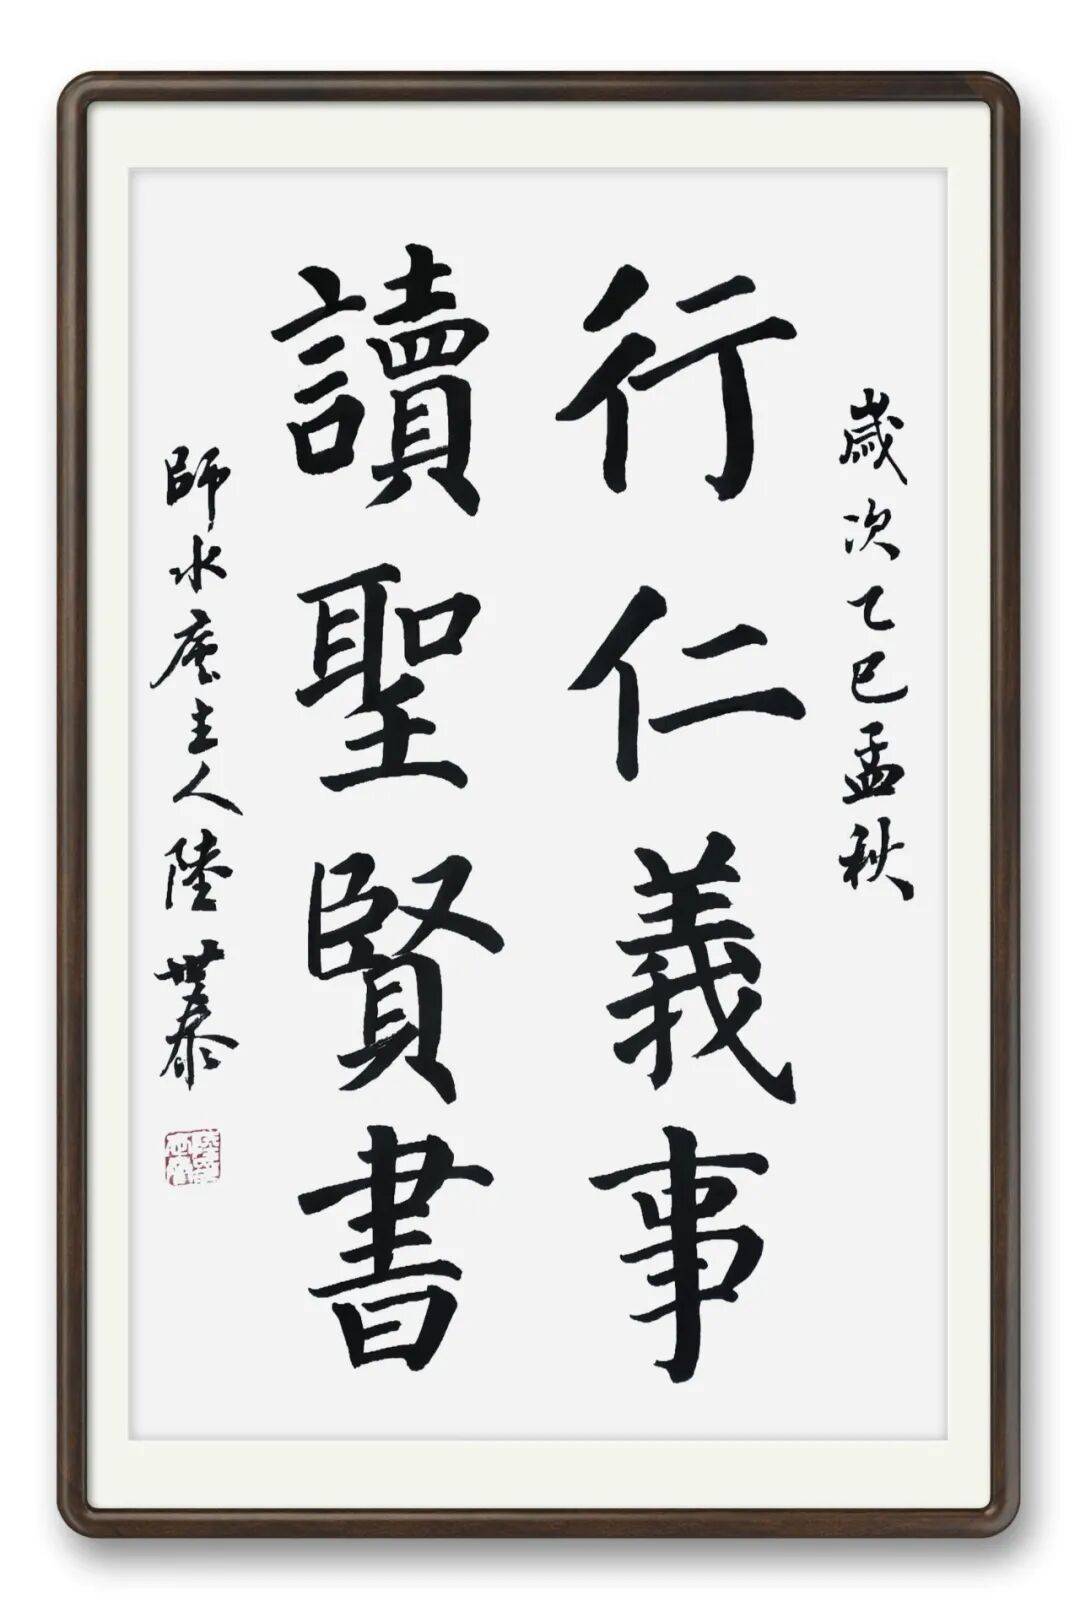 歲次乙巳孟秋
行仁義事
讀聖賢書
師水主人陸世泰